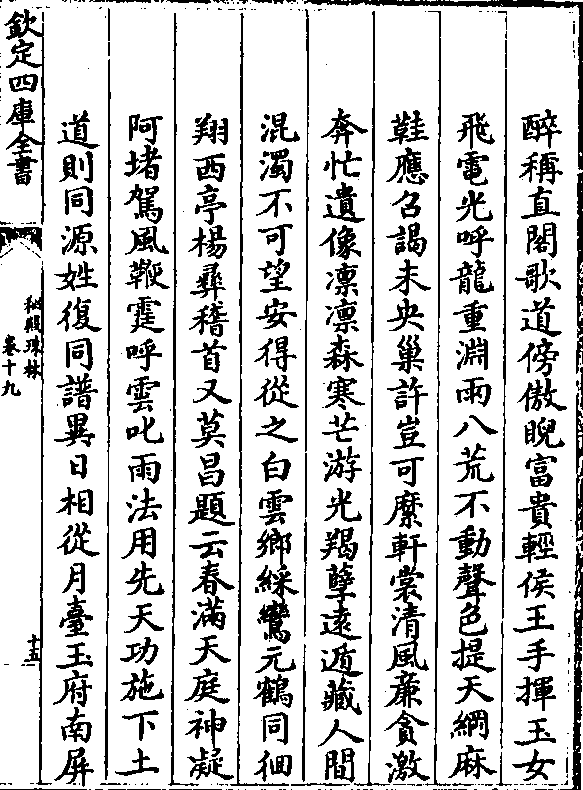 醉稱直閣歌道傍傲睨富貴輕侯王手揮玉女
飛電光呼龍重淵雨八荒不動聲色提天綱麻
鞋應召謁未央巢許豈可縻軒裳清風亷貪激
奔忙遺像凛凛森寒芒游光羯孽遠遁藏人間
混濁不可望安得從之白雲鄉綵鸞元鶴同徊
翔西亭楊彛稽首又莫昌題云春滿天庭神凝
阿堵駕風鞭霆呼雲叱雨法用先天功施下土
道則同源姓復同譜異日相從月臺玉府南屏
欽定四庫全書
秘殿珠林
卷十九
十五